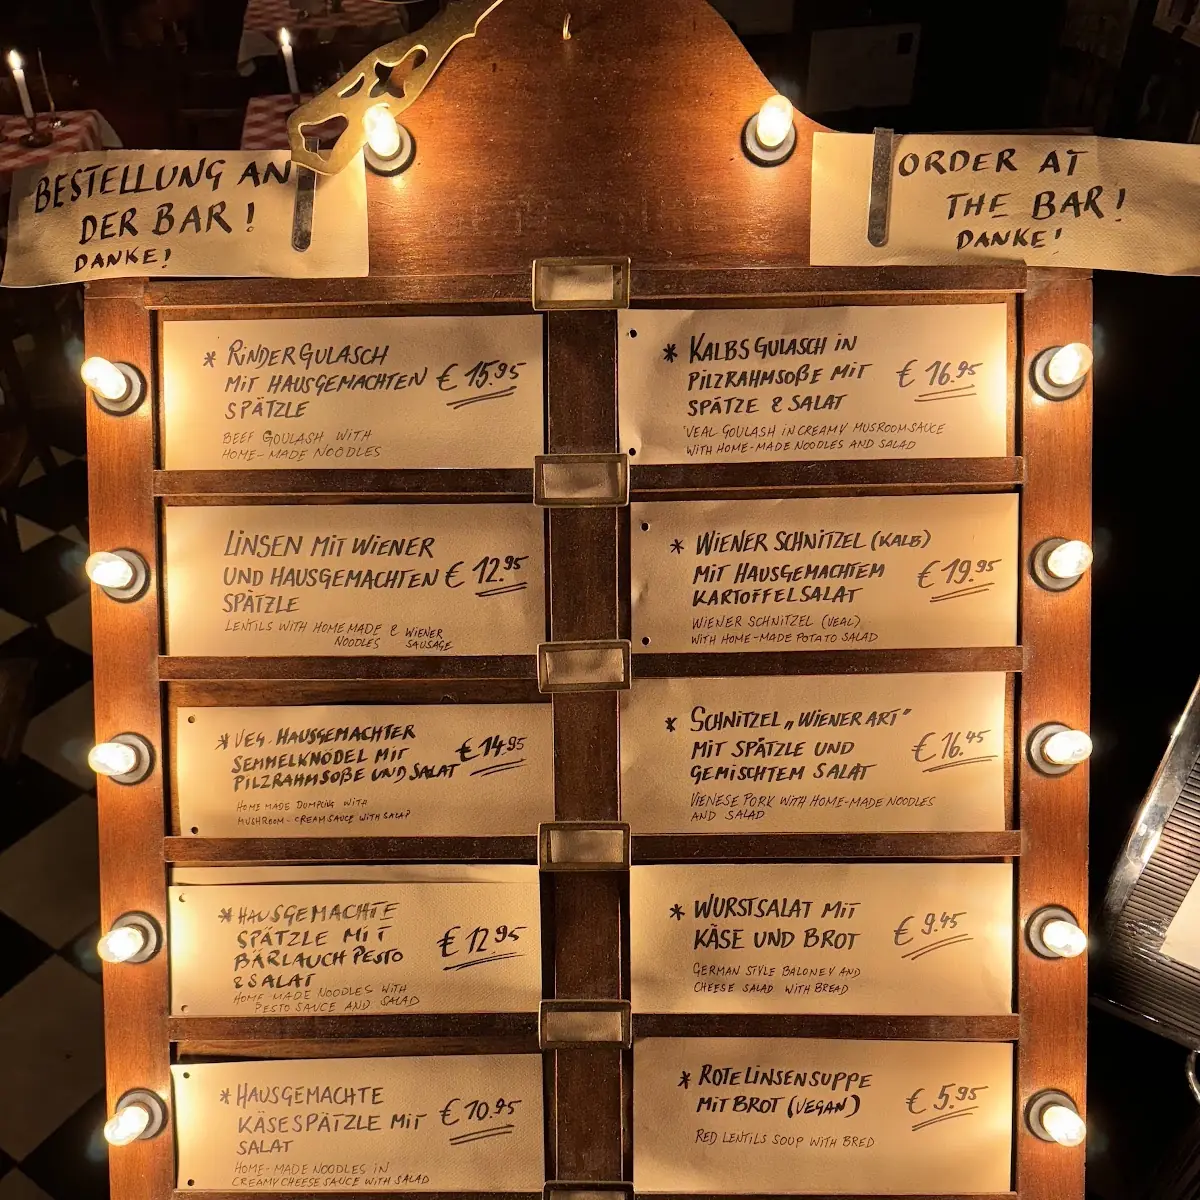 BESTELLUNG AN
DER BAR!
DANKE!
ORDER AT
THE BAR!
DANKE!
* RINDERGULASCH
MIT HAUSGEMACHTEN € 15.95
SPÄTZLE
BEEF GOULASH WITH
HOME-MADE NOODLES
* KALBSGULASCH IN
PILZRAHMSOßE MIT € 16.95
SPÄTZE & SALAT
VEAL GOULASH IN CREAMY MUSROOMSAUCE
WITH HOME-MADE NOODLES AND SALAD
LINSEN MIT WIENER
UND HAUSGEMACHTEN € 12.95
SPÄTZLE
LENTILS WITH HOMEMADE & WIENER
NOODLES SAUSAGE
* WIENER SCHNITZEL (KALB)
MIT HAUSGEMACHTEM € 19.95
KARTOFFELSALAT
WIENER SCHNITZEL (VEAL)
WITH HOME-MADE POTATO SALAD
* VEG. HAUSGEMACHTER
SEMMELKNÖDEL MIT € 14.95
PILZRAHMSOßE UND SALAT
HOME MADE DUMPLING WITH
MUSHROOM-CREAMSAUCE WITH SALAD
* SCHNITZEL „WIENER ART"
MIT SPÄTZLE UND € 16.45
GEMISCHTEM SALAT
VIENESE PORK WITH HOME-MADE NOODLES
AND SALAD
* HAUSGEMACHTE
SPÄTZLE MIT € 12.95
BÄRLAUCH PESTO
& SALAT
HOME MADE NOODLES WITH
PESTO SAUCE AND SALAD
* WURSTSALAT MIT
KÄSE UND BROT € 9.45
GERMAN STYLE BALONEY AND
CHEESE SALAD WITH BREAD
* HAUSGEMACHTE
KÄSESPÄTZLE MIT € 10.95
SALAT
HOME-MADE NOODLES IN
CREAMY CHEESE SAUCE WITH SALAD
* ROTE LINSENSUPPE
MIT BROT (VEGAN) € 5.95
RED LENTILS SOUP WITH BRED